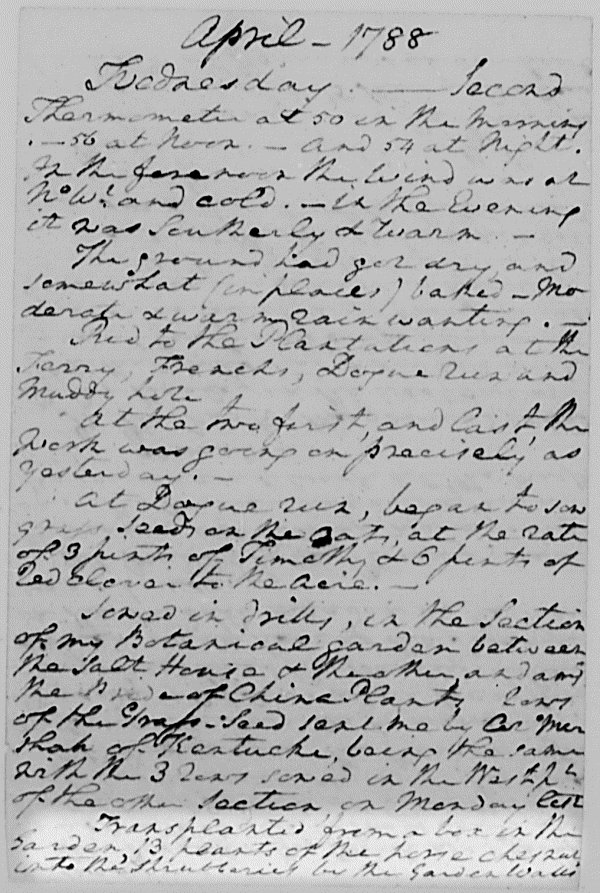 April - 1788
Wednesday. — Second
Thermometer at 50 in the Morning
. - 56 at Noon. - and 54 at Night.
In the forenoon the Wind was at
No. Wt. and cold. - in the Evening
it was Southerly & warm. -
The ground had got dry, and
somewhat (in places) baked - Mo
derate & warm rain wanting. -
Rid to the Plantations at the
Ferry, Frenchs, Dogue run and
Muddy hole
At the two first, and last, the
Work was going on precisely as
yesterday. -
At Dogue run, began to sow
grass seeds on the Oats, at the rate
of 3 pints of Timothy & 6 pints of
Red clover to the acre. -
Sowed in drills, in the Section
of my Botanical garden between
the Salt House & the other, and amg.
the Pride of China Plants, rows
of the Grass-Seed sent me by Colo. Mar
shall of Kentucke, being the same
with the 3 rows sowed in the West pt.
of the other Section, on Monday last
Transplanted, from a box in the
Garden 13 plants of the horse chesnut
into the shrubberies by the Garden Walls